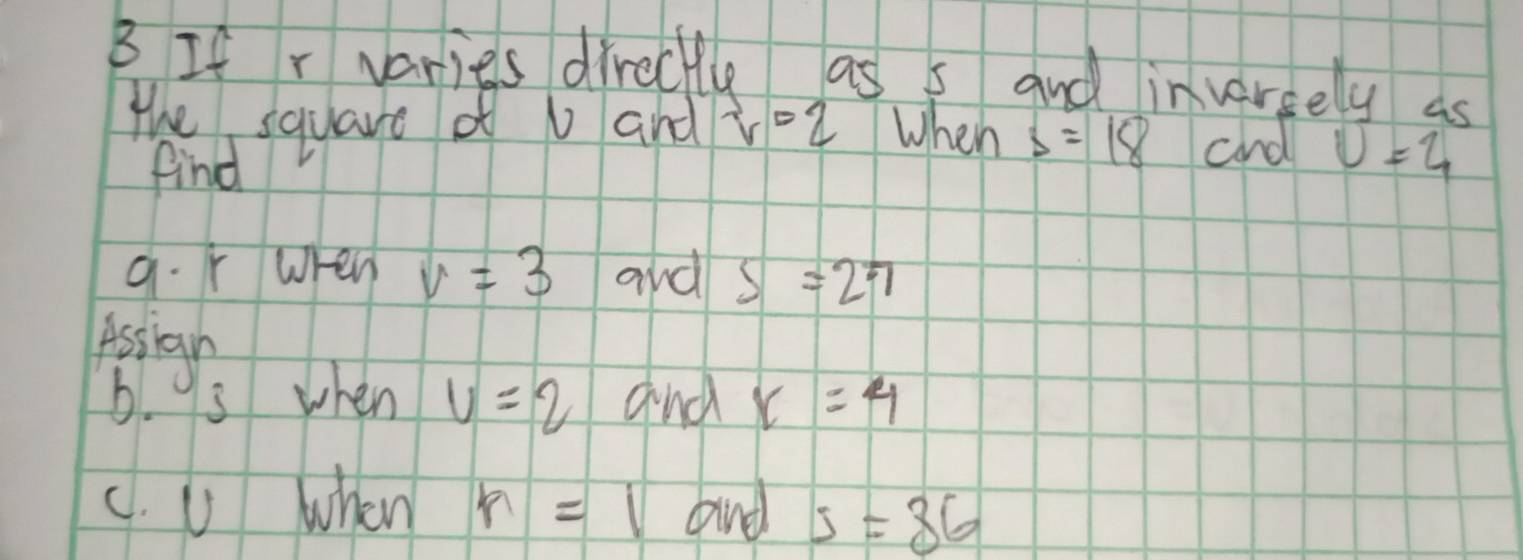 3 If r varies directly as s and inversely as
the square of v and r=2 when s=18 and v=4
find
a. r when v=3 and s=27
Assign
b. s when v=2 and r=4
c. v when r=1 and s=36